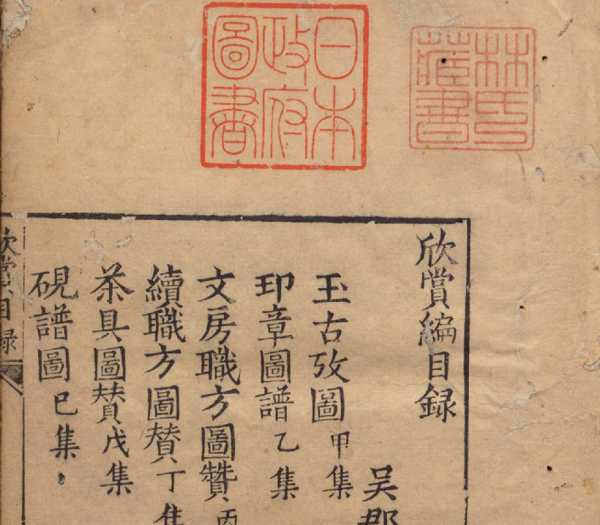 日本
政府
圖書
林氏
藏書
欣賞編目録
吴郡
玉古攷圖 甲集
印章圖譜 乙集
文房職方圖贊 丙
續職方圖贊 丁集
茶具圖贊 戊集
硯譜圖 已集
欣賞目録